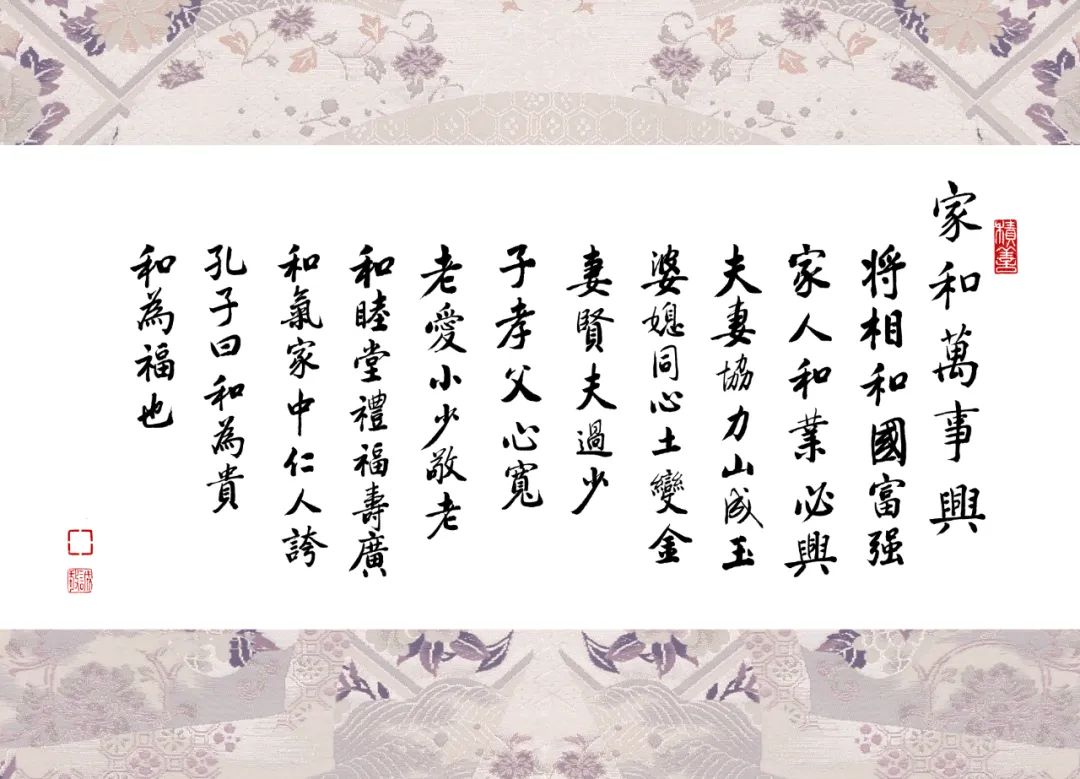 積善
家和萬事興
将相和國富强
家人和業必興
夫妻協力山成玉
婆媳同心土變金
妻賢夫過少
子孝父心寬
老愛小少敬老
和睦堂禮福壽廣
和氣家中仁人誇
孔子曰和為貴
和為福也